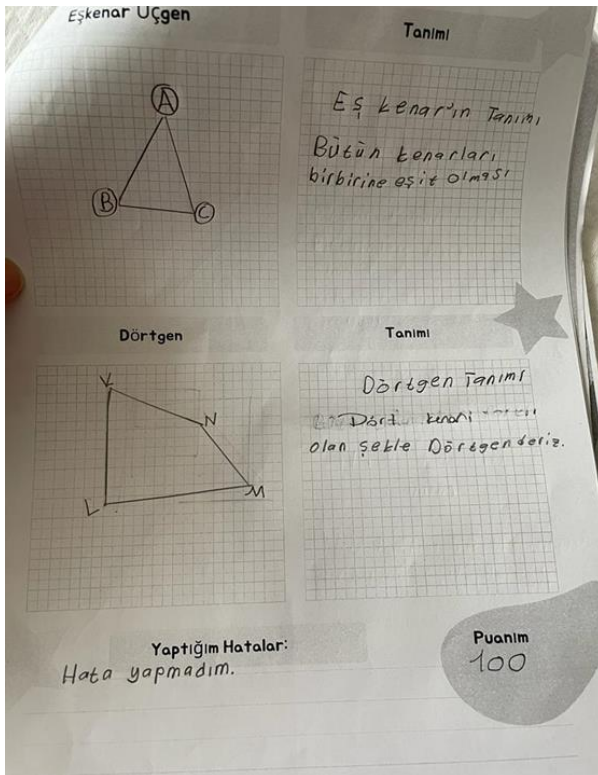 Eşkenar Üçgen
Tanımı
A
B
C
Eş kenar'ın Tanımı
Bütün kenarları
birbirine eşit olması
Dörtgen
Tanımı
K
N
L
M
Dörtgen Tanımı
Dört kenarı
olan şekle Dörtgen deriz.
Yaptığım Hatalar:
Hata yapmadım.
Puanım
100